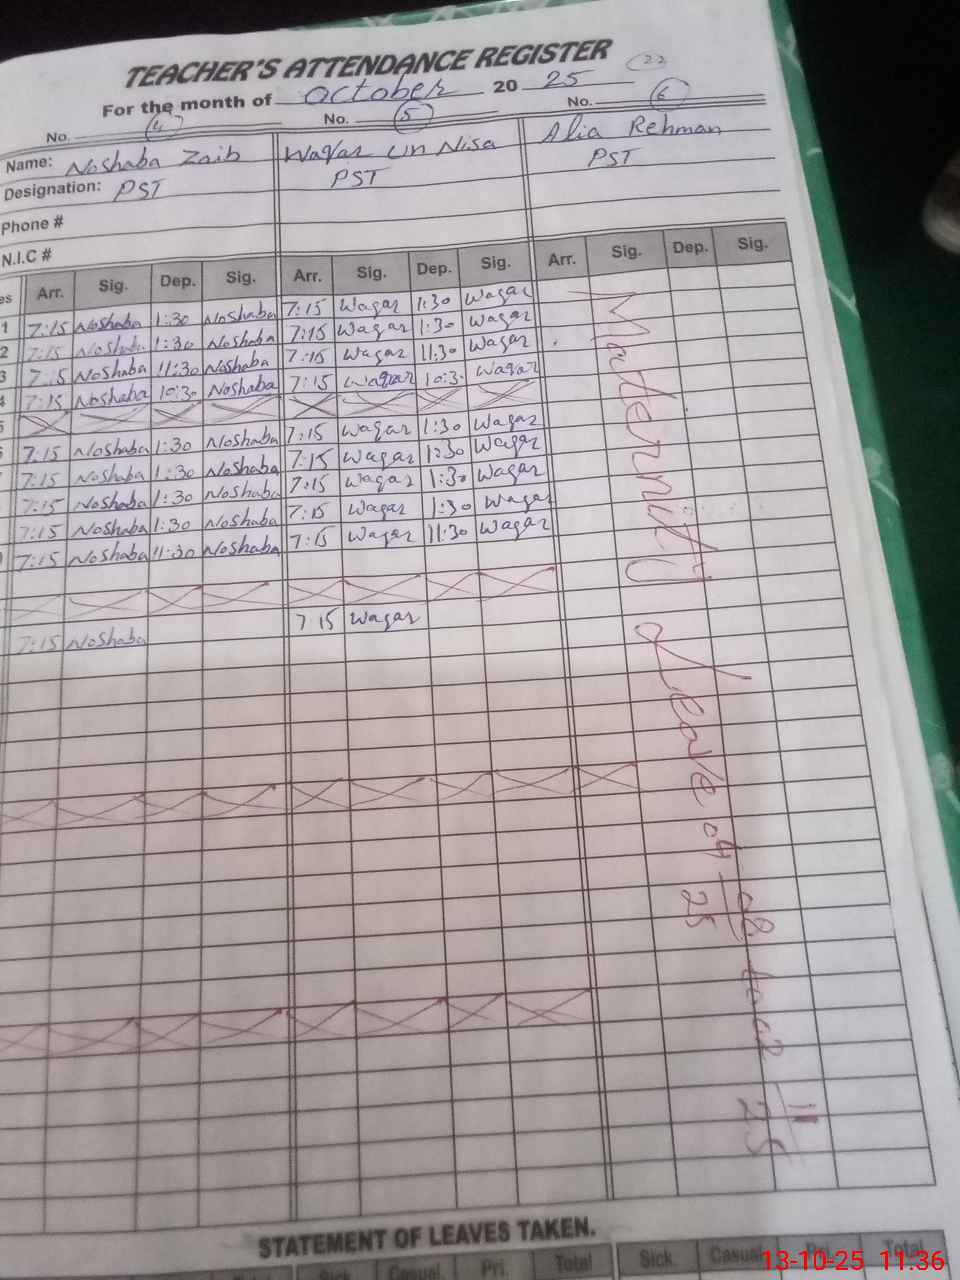 TEACHER'S ATTENDANCE REGISTER
For the month of October 20 25 (22)
No. 4 No. 5 No. 6
Name: Noshaba Zaib Waqar un Nisa Alia Rehman
Designation: PST PST PST
Phone #
N.I.C #
es Arr. Sig. Dep. Sig. Arr. Sig. Dep. Sig. Arr. Sig. Dep. Sig.
1 7:15 Noshaba 1:30 Noshaba 7:15 Waqar 1:30 Waqar
2 7:15 Noshaba 1:30 Noshaba 7:15 Waqar 1:30 Waqar
3 7:15 Noshaba 11:30 Noshaba 7:15 Waqar 11:30 Waqar
4 7:15 Noshaba 10:30 Noshaba 7:15 Waqar 10:30 Waqar
5
7:15 Noshaba 1:30 Noshaba 7:15 Waqar 1:30 Waqar
7:15 Noshaba 1:30 Noshaba 7:15 Waqar 1:30 Waqar
7:15 Noshaba 1:30 Noshaba 7:15 Waqar 1:30 Waqar
7:15 Noshaba 1:30 Noshaba 7:15 Waqar 1:30 Waqar
7:15 Noshaba 11:30 Noshaba 7:15 Waqar 11:30 Waqar
7:15 Noshaba 7:15 Waqar
Maternity Leave 04-08-25 to 02-11-25
STATEMENT OF LEAVES TAKEN.
Total Sick Casual Pri. Total Sick Casual Pri. Total
13-10-25 11.36